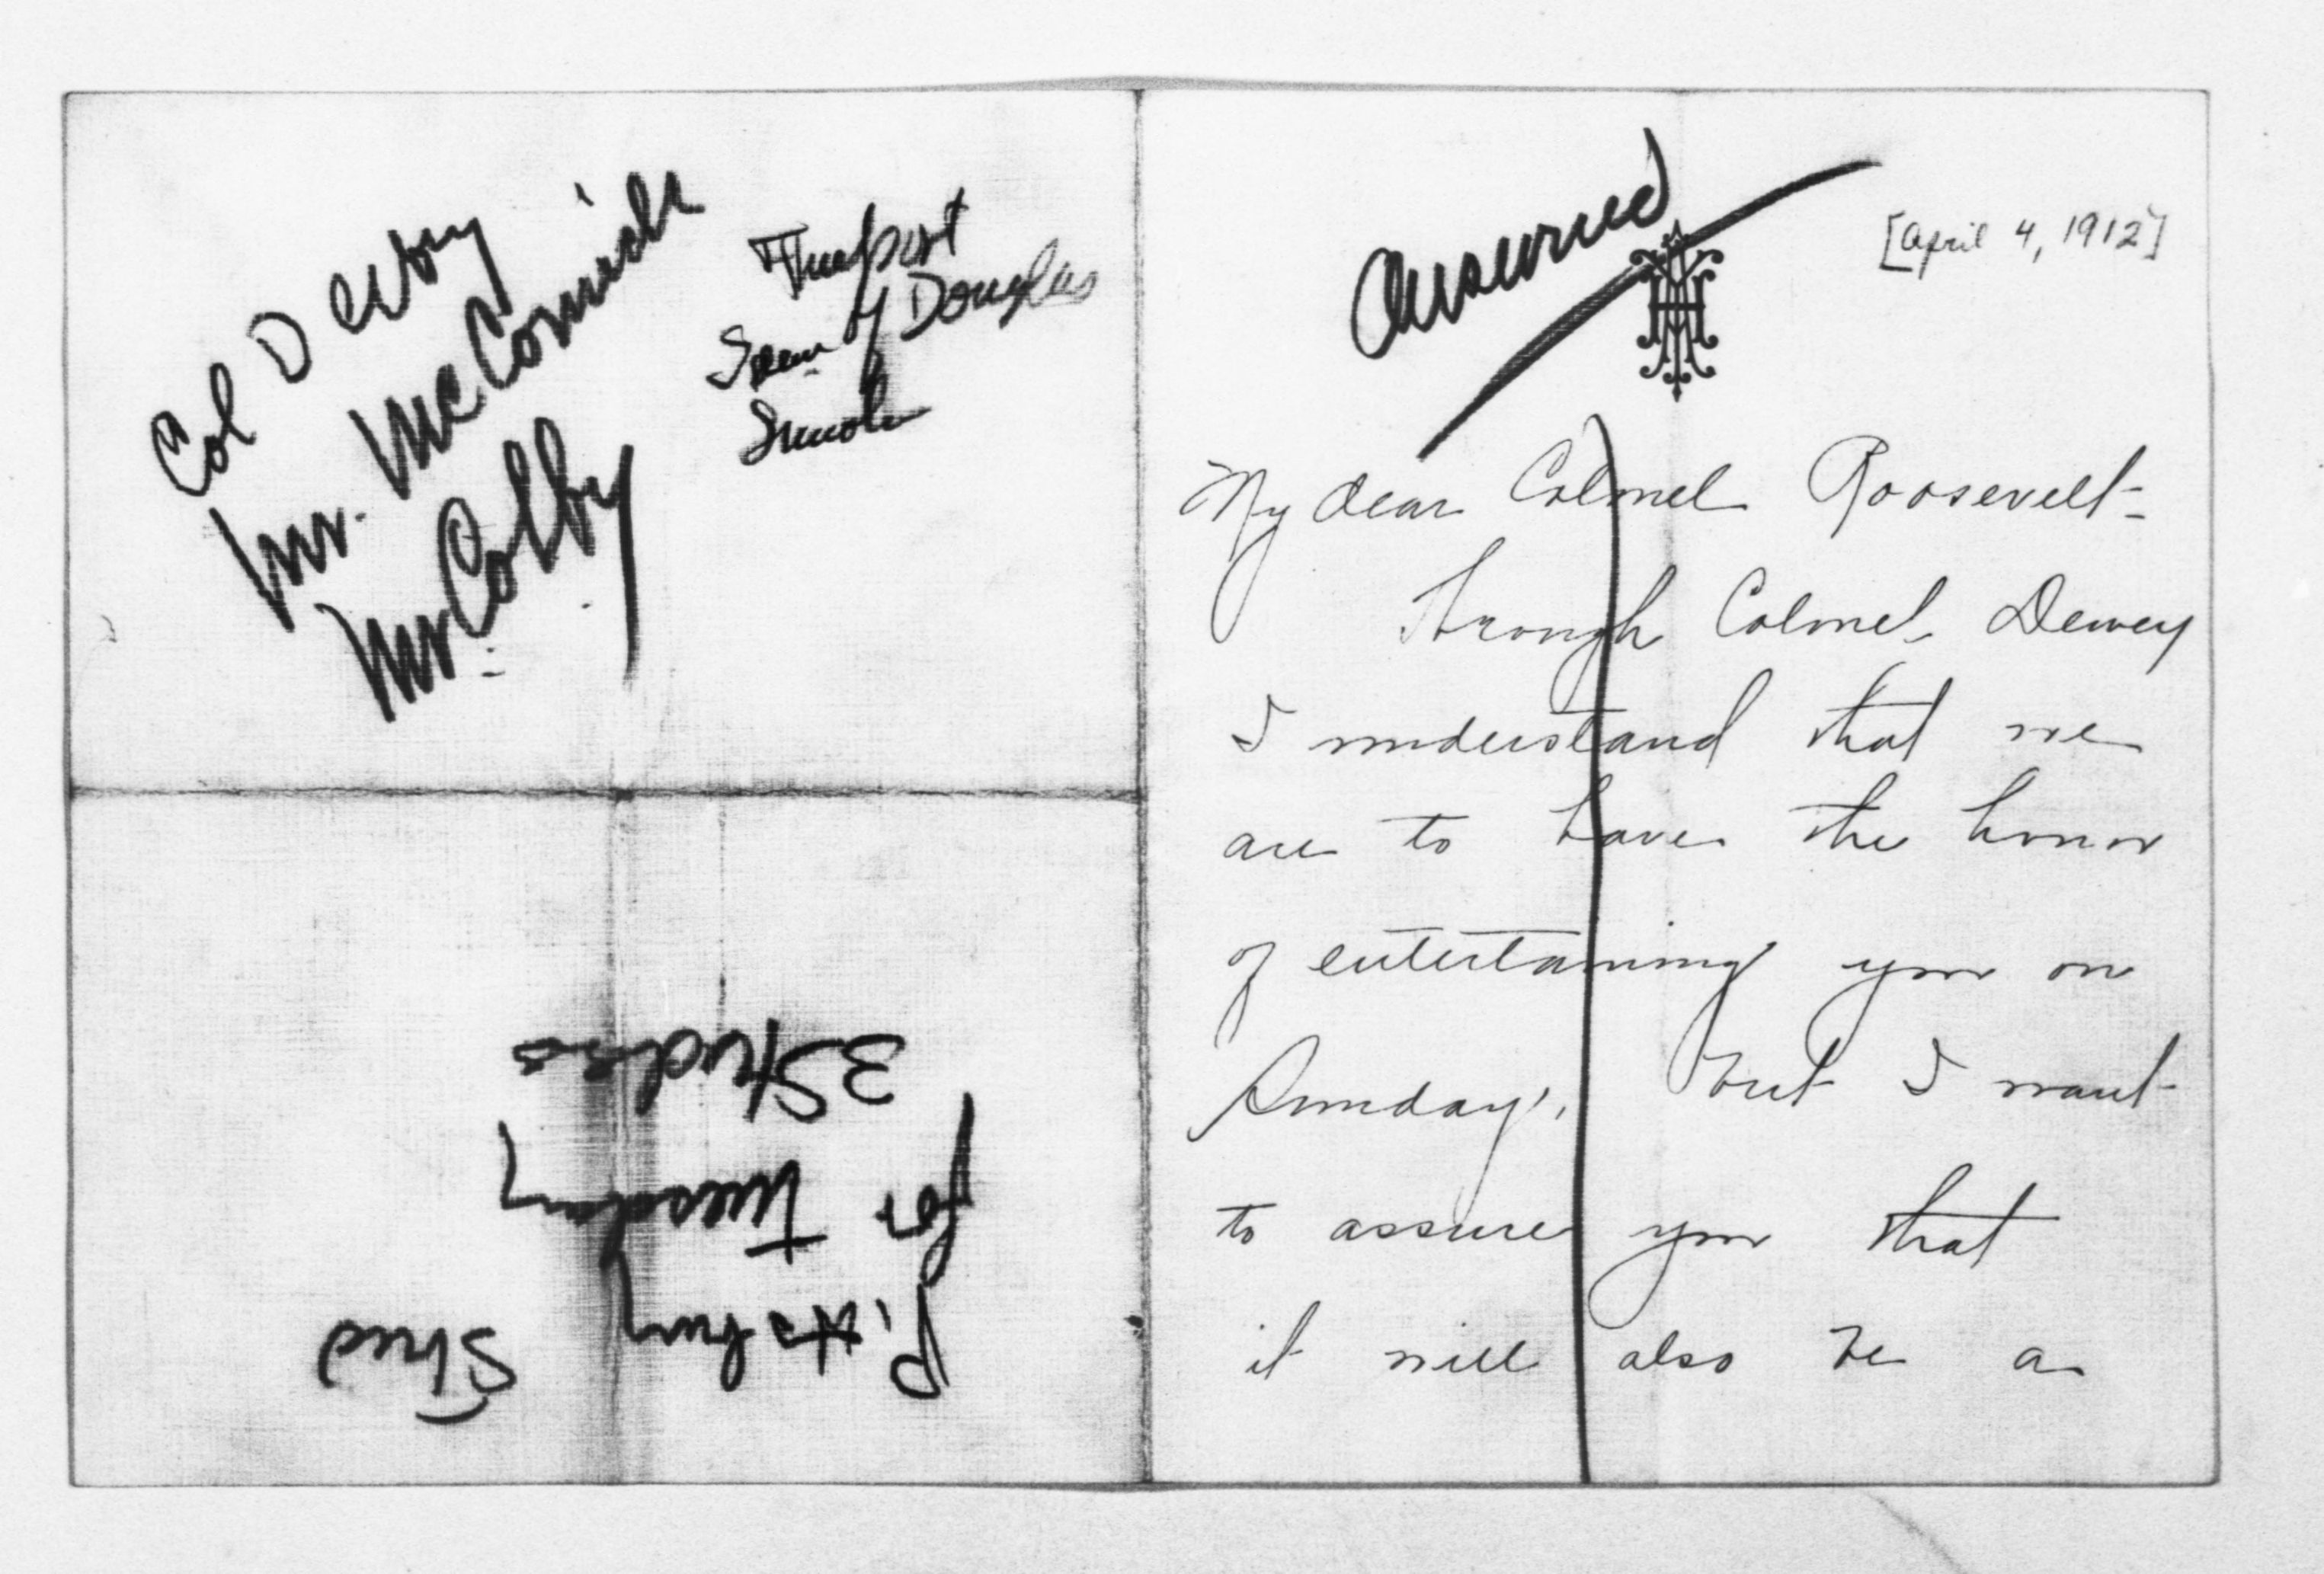 Col Dewey
Mr. McCormick
Mr. Colby
Freeport
of Douglas
Lincoln
Answered
[April 4, 1912]
My dear Colonel Roosevelt-
Through Colonel Dewey
I understand that we
are to have the honor
of entertaining you on
Sunday, but I want
to assure you that
it will also be a
Pittsburg
for Tuesday